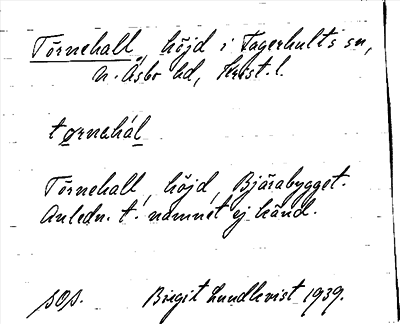 Törnehall, höjd i Fagerhults sn,
N. Åsbo hd, Krist. l.
tørnehál
Törnehall, höjd, Bjärabygget.
Anledn. t. namnet ej känd.
Birgit Lundkvist 1939.